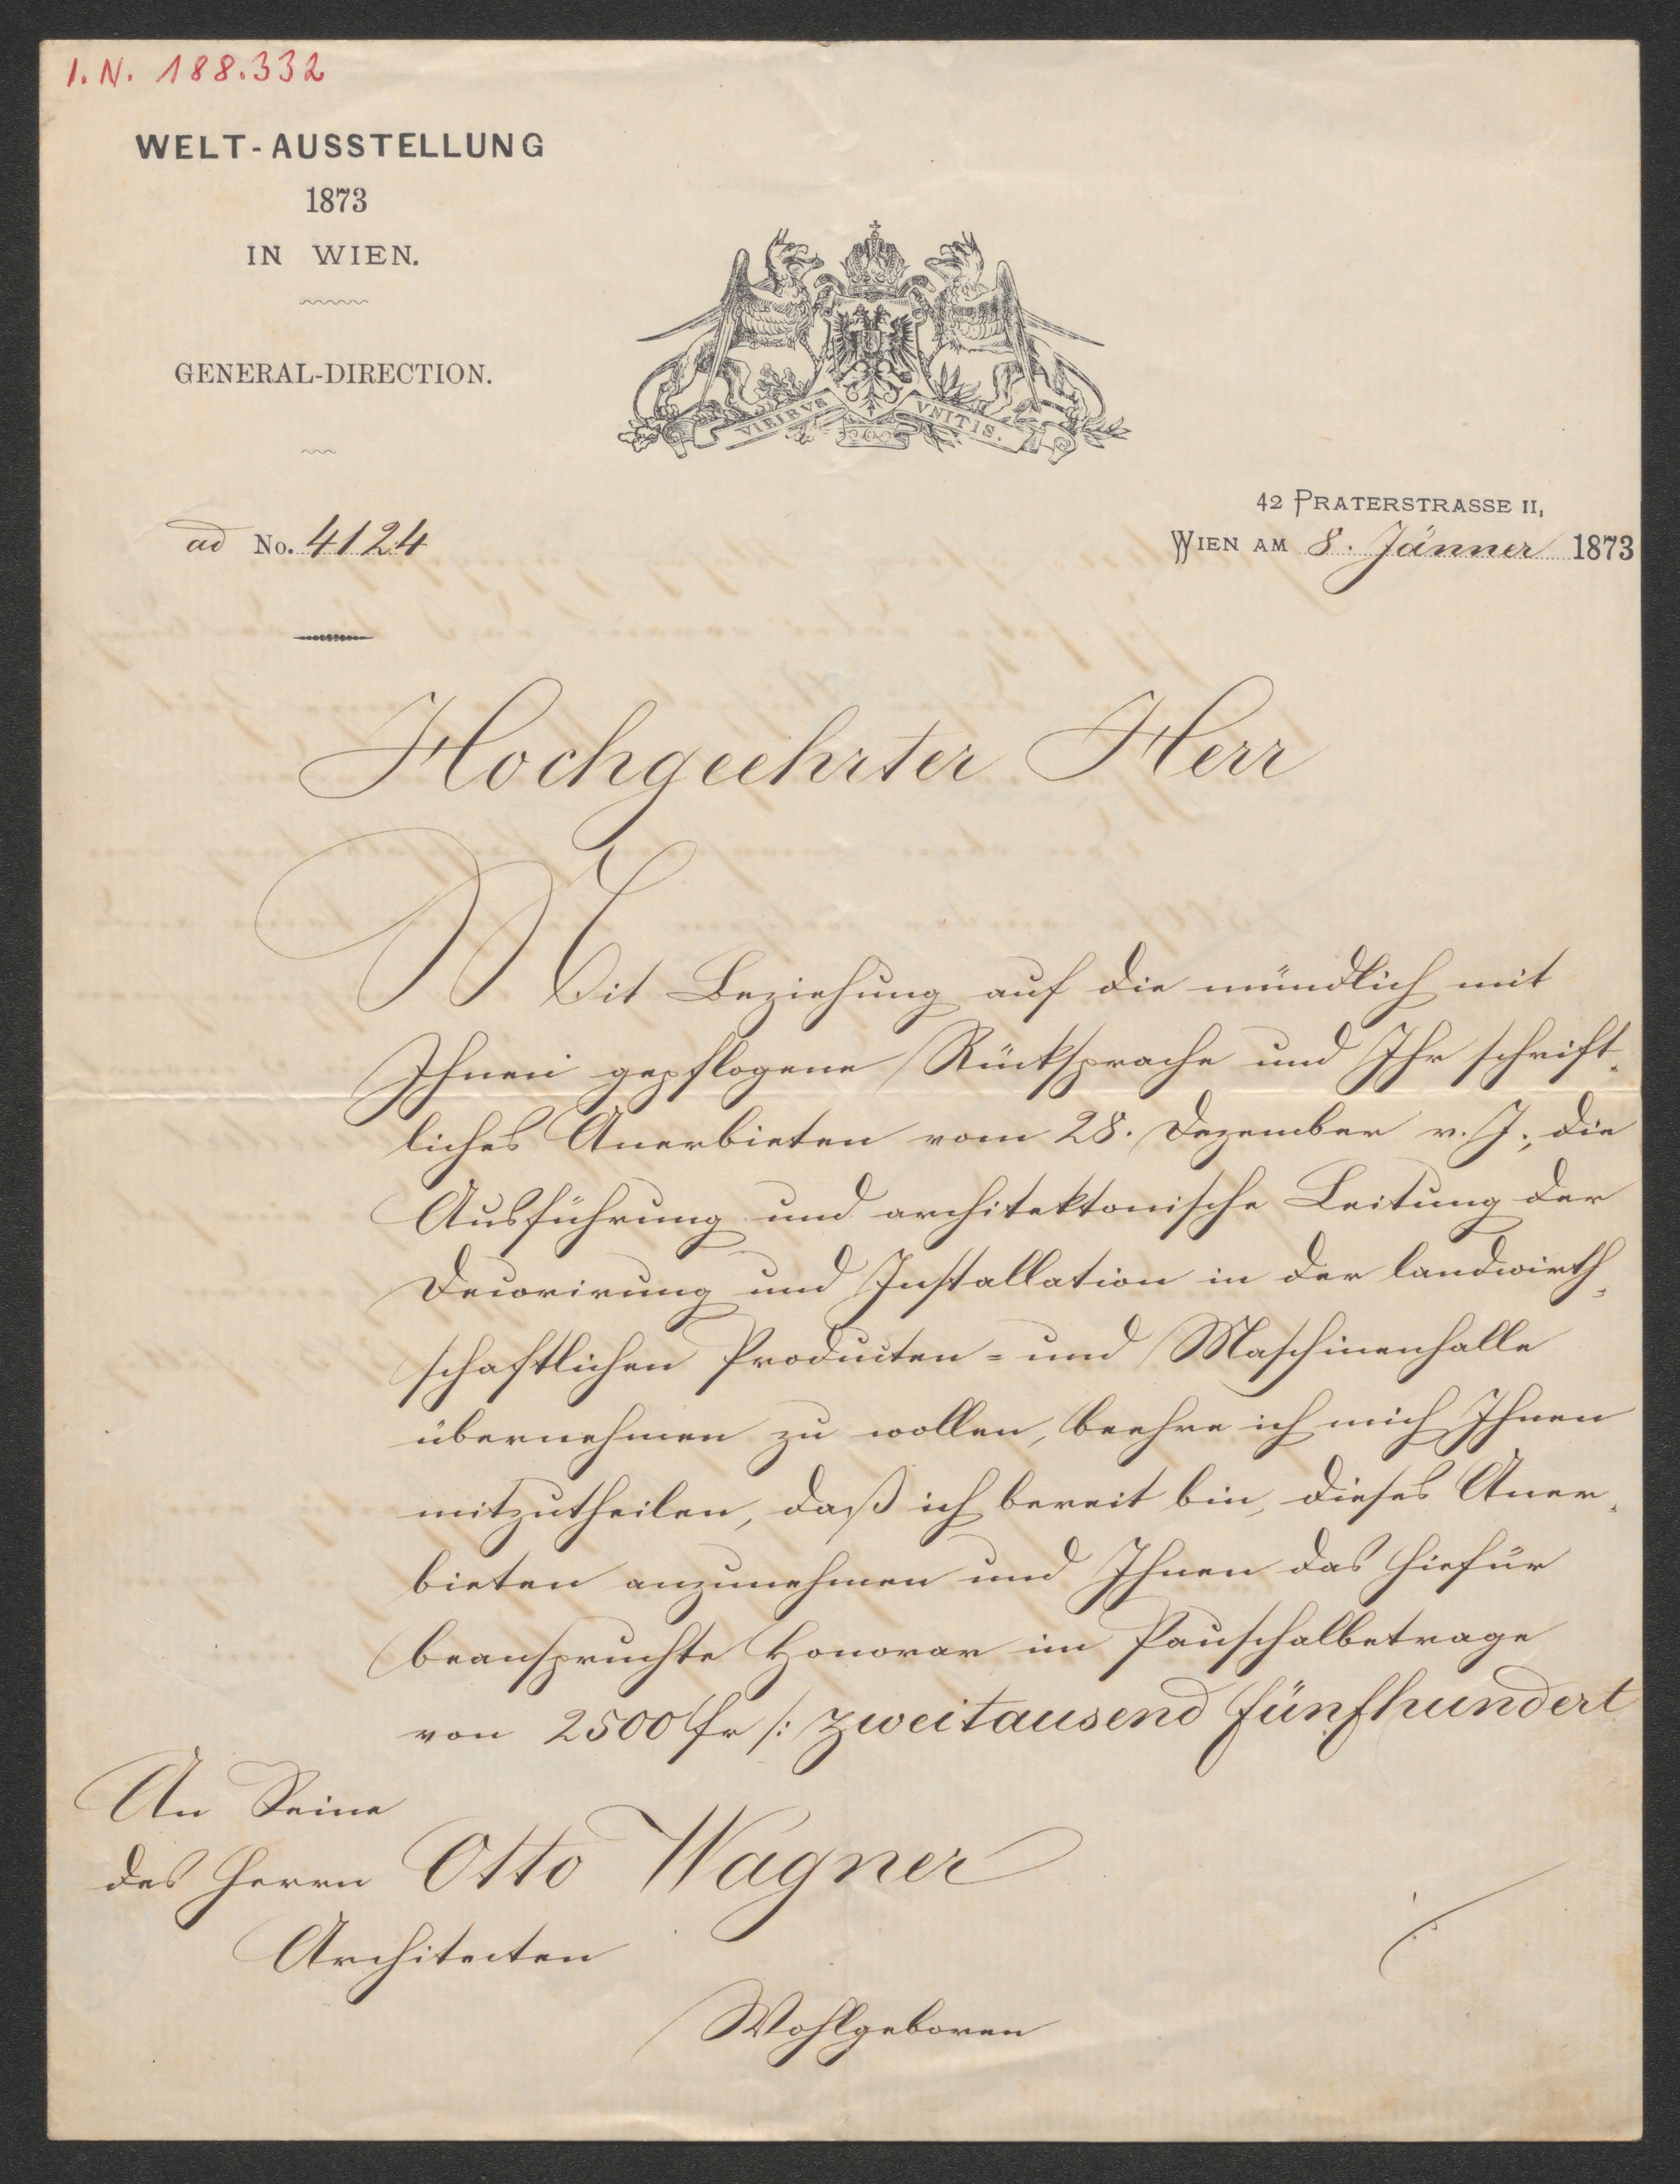 I. N. 188.332
WELT-AUSSTELLUNG
1873
IN WIEN.
GENERAL-DIRECTION.
VIRIBVS VNITIS.
42 PRATERSTRASSE II,
ad No. 4124
WIEN AM 8. Jänner 1873
Hochgeehrter Herr
Mit Beziehung auf die mündlich mit
Ihnen gepflogene Rücksprache und Ihr schrift-
liches Anerbieten vom 28. Dezember v. J., die
Ausführung und architektonische Leitung der
Decorirung und Installation in der landwirth-
schaftlichen Producten- und Maschinenhalle
übernehmen zu wollen, beehre ich mich Ihnen
mitzutheilen, daß ich bereit bin, dieses Aner-
bieten anzunehmen und Ihnen das hiefür
beanspruchte Honorar im Pauschalbetrage
von 2500 fr /: zweitausend fünfhundert
An Seine
des Herrn Otto Wagner
Architecten
Wohlgeboren